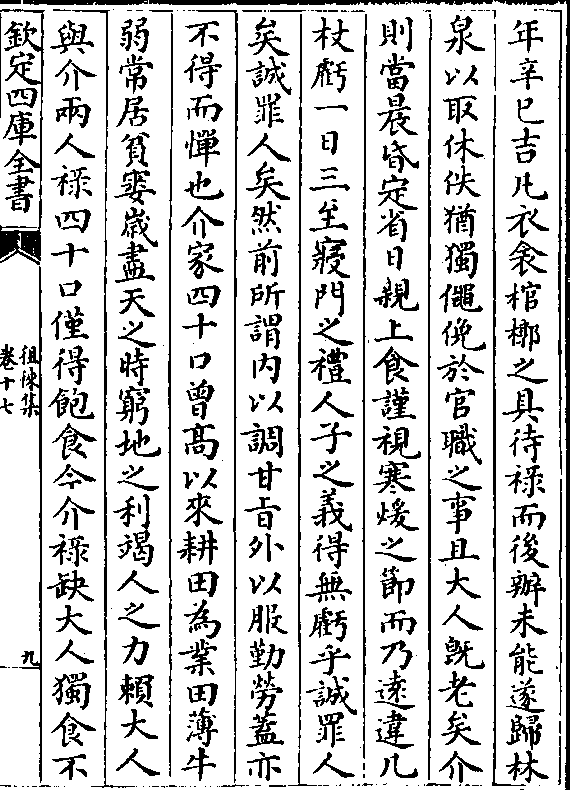 年辛巳吉凡衣衾棺槨之具待祿而後辦未能遂歸林
泉以取休佚猶獨僶俛於官職之事且大人既老矣介
則當晨昏定省日親上食謹視寒煖之節而乃遠違几
杖虧一日三至寢門之禮人子之義得無虧乎誠罪人
矣誠罪人矣然前所謂内以調甘旨外以服勤勞蓋亦
不得而憚也介家四十口曾髙以來耕田為業田薄牛
弱常居貧窶嵗盡天之時窮地之利竭人之力頼大人
與介兩人祿四十口僅得飽食今介祿缺大人獨食不
欽定四庫全書
徂徠集
卷十七
九